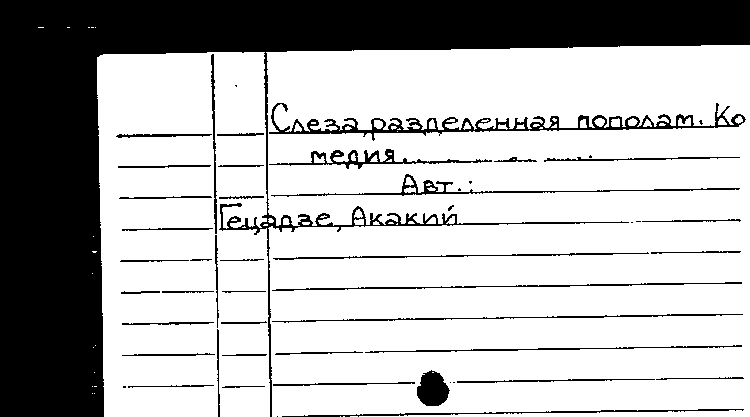 Слеза, разделенная пополам. Ко
медия...
Авт.:
Гецадзе, Акакий